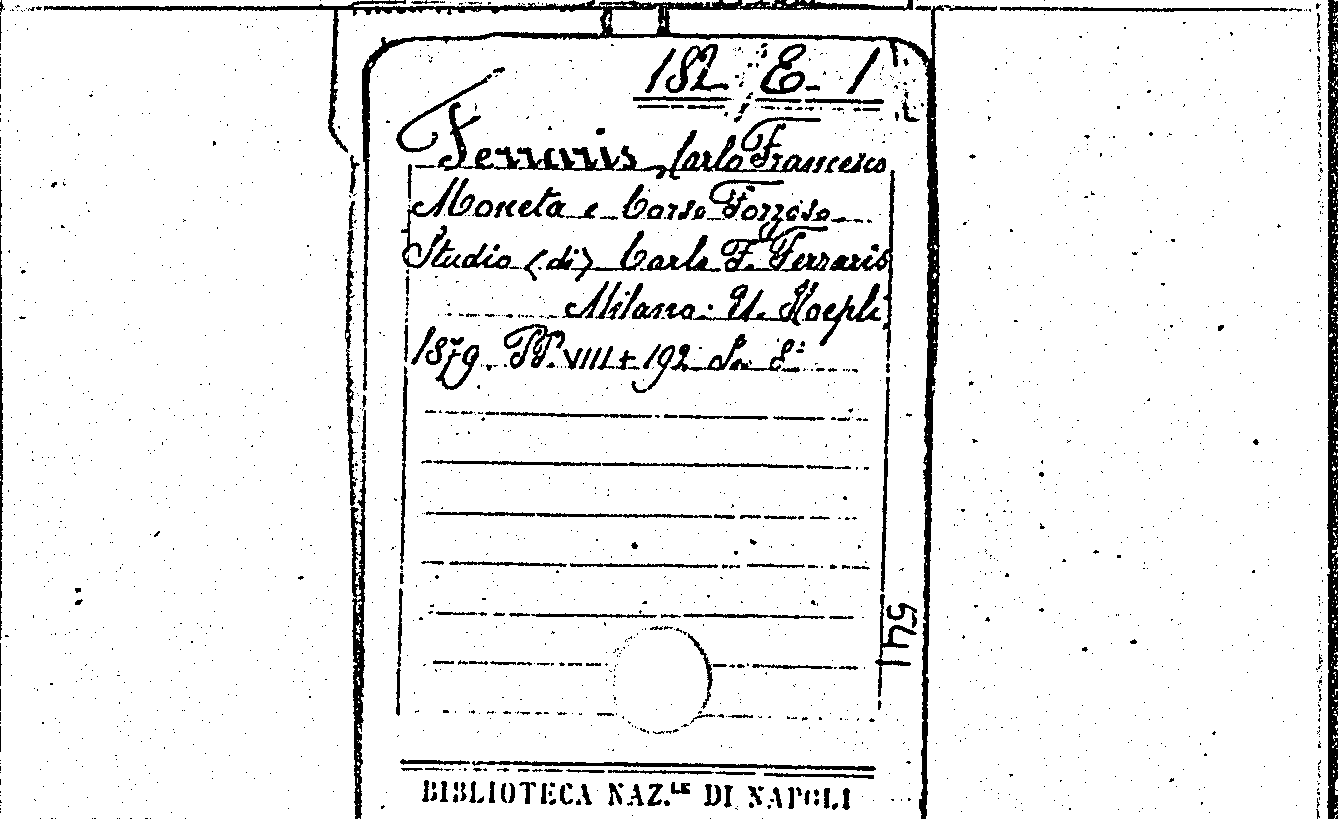 182 E. 1
Ferraris, Carlo Francesco
Moneta e Corso Forzoso
Studio (di) Carlo F. Ferraris
Milano: U. Hoepli,
1879. PP. VIII + 192. In 8º
54
BIBLIOTECA NAZ.LE DI NAPOLI